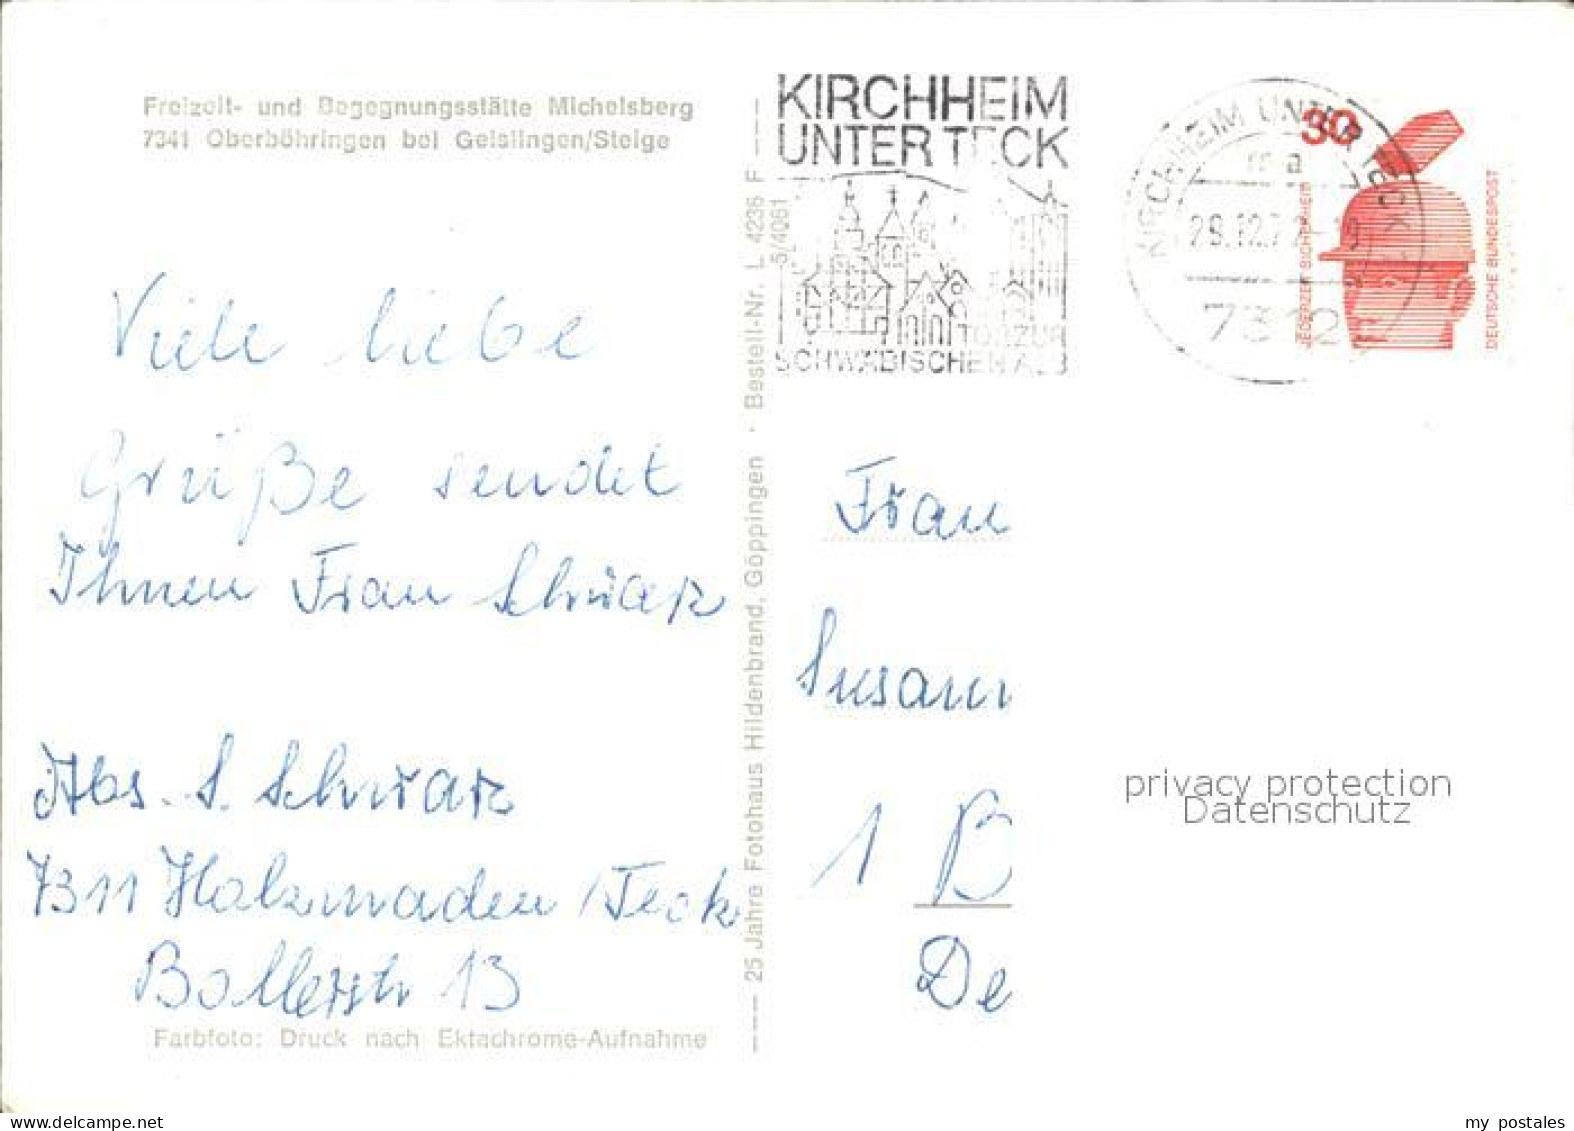 Freizeit- und Begegnungsstätte Michelsberg
7341 Oberböhringen bei Geislingen/Steige
Viele liebe
Grüße sendet
Ihnen Frau Schwarz
Abs. S. Schwarz
7311 Holzmaden /Teck
Bollerstr 13
Farbfoto: Druck nach Ektachrome-Aufnahme
25 Jahre Fotohaus Hildenbrand, Göppingen · Bestell-Nr. L 4236 F
5/4061
KIRCHHEIM
UNTER TECK
TOR ZUR
SCHWÄBISCHEN ALB
KIRCHHEIM UNTER TECK
7312
30
JEDERZEIT SICHERHEIT
DEUTSCHE BUNDESPOST
Frau
Susann
1 B
De
privacy protection
Datenschutz
my postales